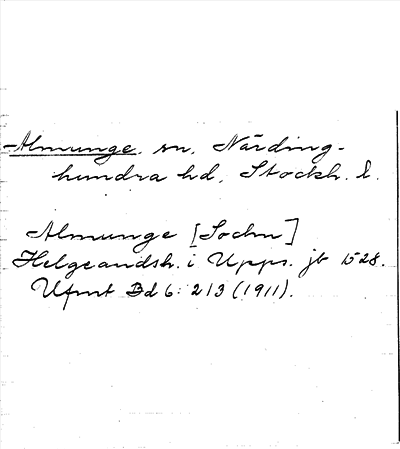 Almunge. sn. Närding-
hundra hd, Stockh. l.
Almunge [Sochn]
Helgeandsh. i Upps. jb 1528.
Ufmt Bd 6: 213 (1911).